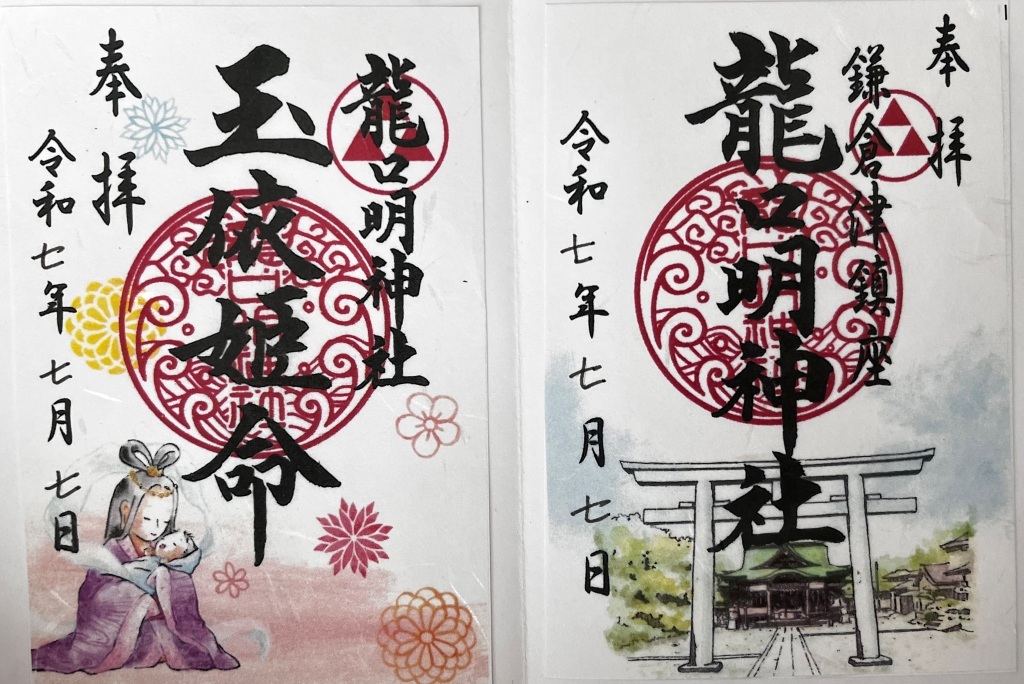 奉拝
龍口明神社
玉依姫命
令和七年七月七日
奉拝
鎌倉津鎮座
龍口明神社
令和七年七月七日